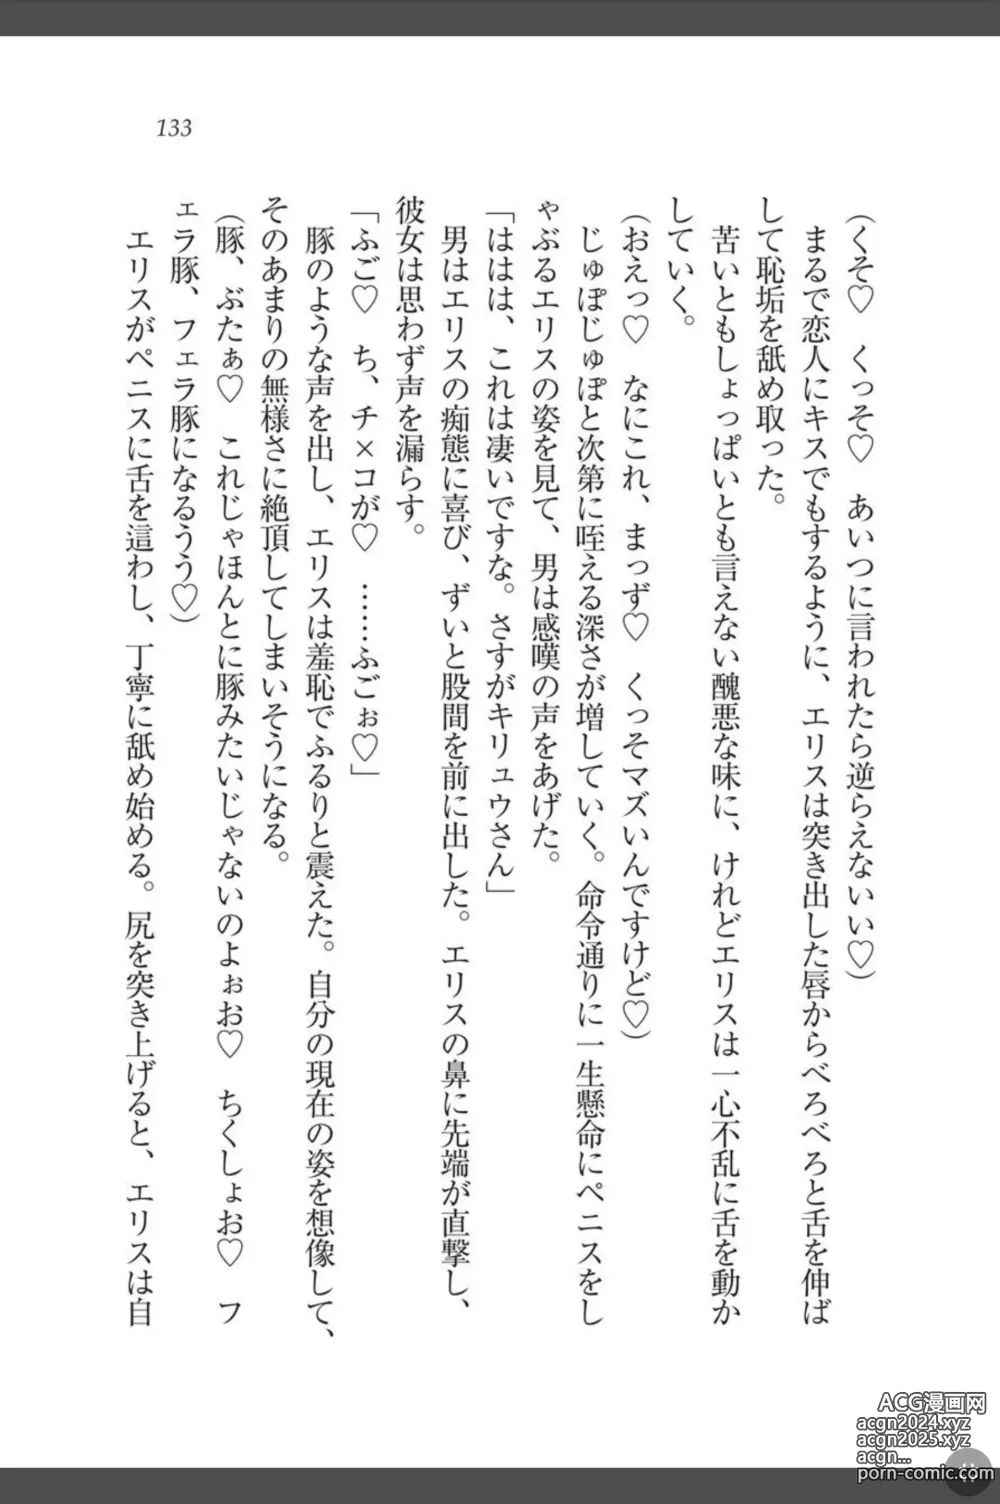 133
(くそ♡ くっそ♡ あいつに言われたら逆らえないい♡)
まるで恋人にキスでもするように、エリスは突き出した唇からべろべろと舌を伸ば
して恥垢を舐め取った。
苦いともしょっぱいとも言えない醜悪な味に、けれどエリスは一心不乱に舌を動か
していく。
(おえっ♡ なにこれ、まっず♡ くっそマズいんですけど♡)
じゅぽじゅぽと次第に咥える深さが増していく。命令通りに一生懸命にペニスをし
ゃぶるエリスの姿を見て、男は感嘆の声をあげた。
「ははは、これは凄いですな。さすがキリュウさん」
男はエリスの痴態に喜び、ずいと股間を前に出した。エリスの鼻に先端が直撃し、
彼女は思わず声を漏らす。
「ふご♡ ち、チ×コが♡ ……ふごぉ♡」
豚のような声を出し、エリスは羞恥でふるりと震えた。自分の現在の姿を想像して、
そのあまりの無様さに絶頂してしまいそうになる。
(豚、ぶたぁ♡ これじゃほんとに豚みたいじゃないのよぉお♡ ちくしょお♡ フ
ェラ豚、フェラ豚になるうう♡)
エリスがペニスに舌を這わし、丁寧に舐め始める。尻を突き上げると、エリスは自
ACG漫画网
acgn2024.xyz
acgn2025.xyz
acgn...
porn-comic.com